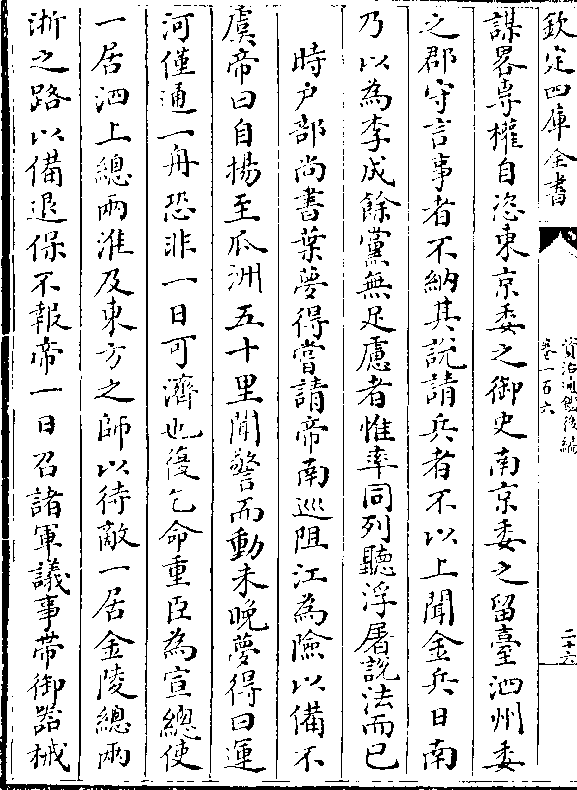 欽定四庫全書
資治通鑑後編
卷一百六
二十六
謀畧専權自恣東京委之御史南京委之留臺泗州委
之郡守言事者不納其説請兵者不以上聞金兵日南
乃以為李成餘黨無足慮者惟率同列聽浮屠說法而已
時户部尚書葉夢得嘗請帝南巡阻江為險以備不
虞帝曰自揚至瓜洲五十里聞警而動未晚夢得曰運
河僅通一舟恐非一日可濟也復乞命重臣為宣總使
一居泗上總兩淮及東方之師以待敵一居金陵總兩
浙之路以備退保不報帝一日召諸軍議事帶御器械